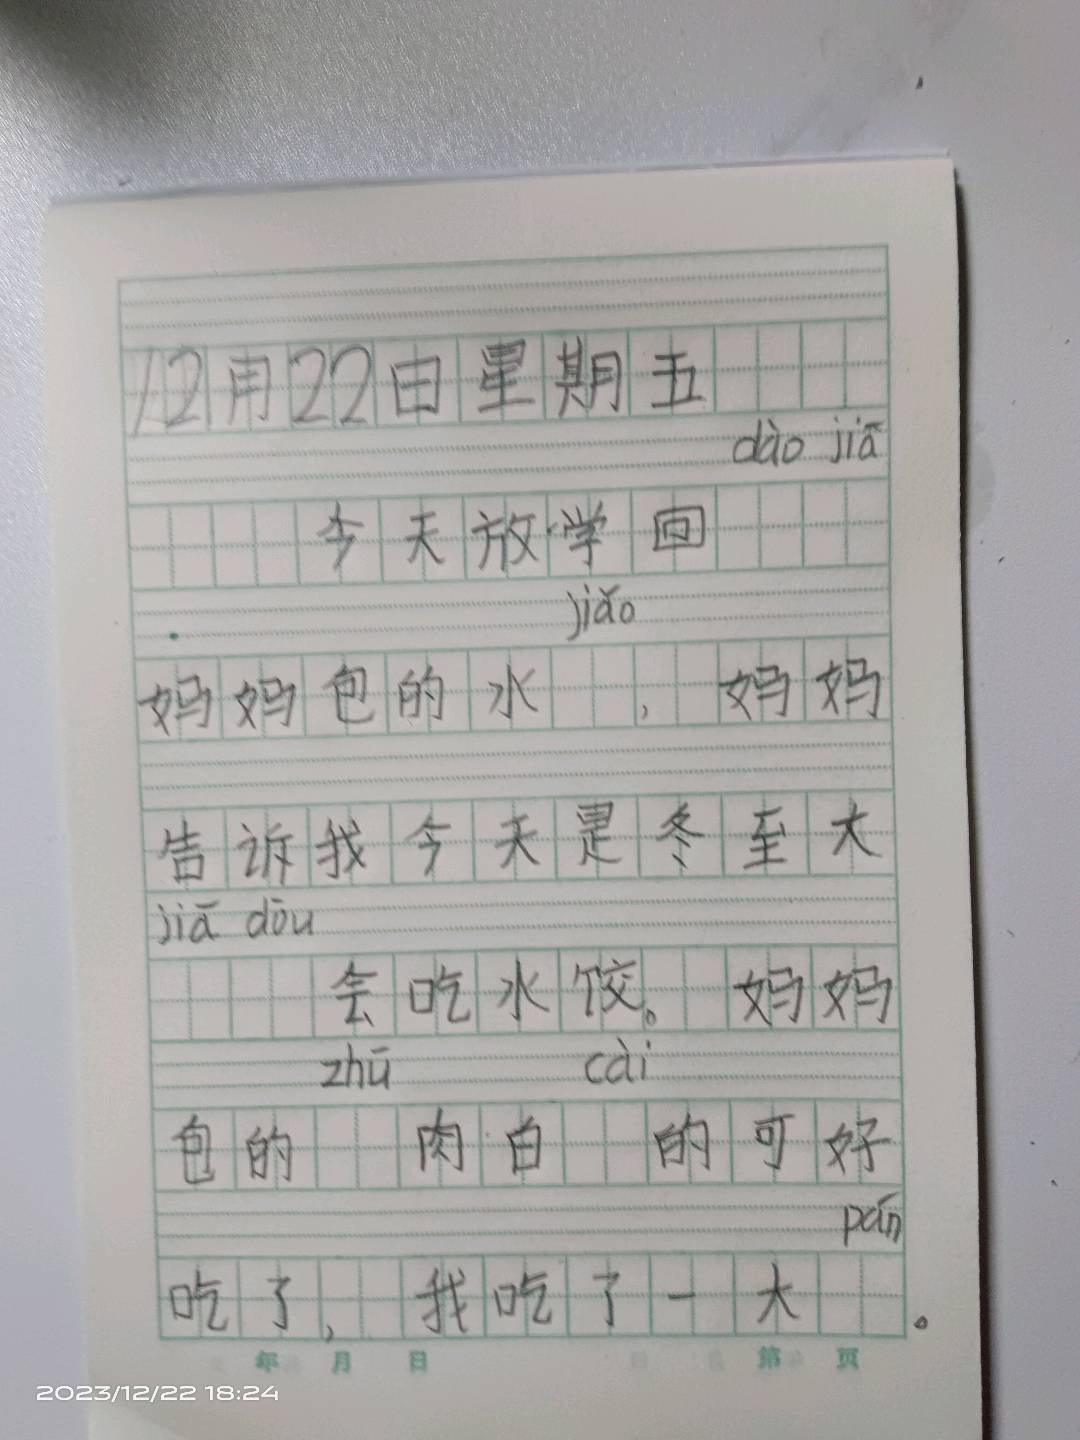 12月22日星期五
dào jiā
今天放学回
jiǎo
妈妈包的水 ，妈妈
告诉我今天是冬至大
jiā dōu
会吃水饺。妈妈
zhū cài
包的 肉白 的可好
pán
吃了，我吃了一大 。
年 月 日 第 页
2023/12/22 18:24